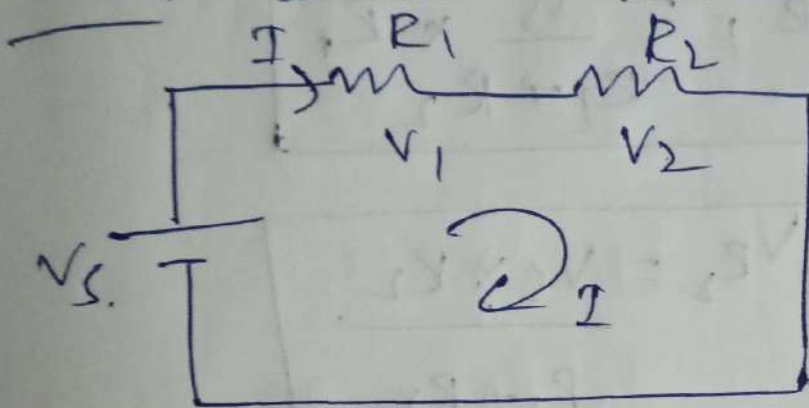 I R1 R2
V1 V2
Vs.
I